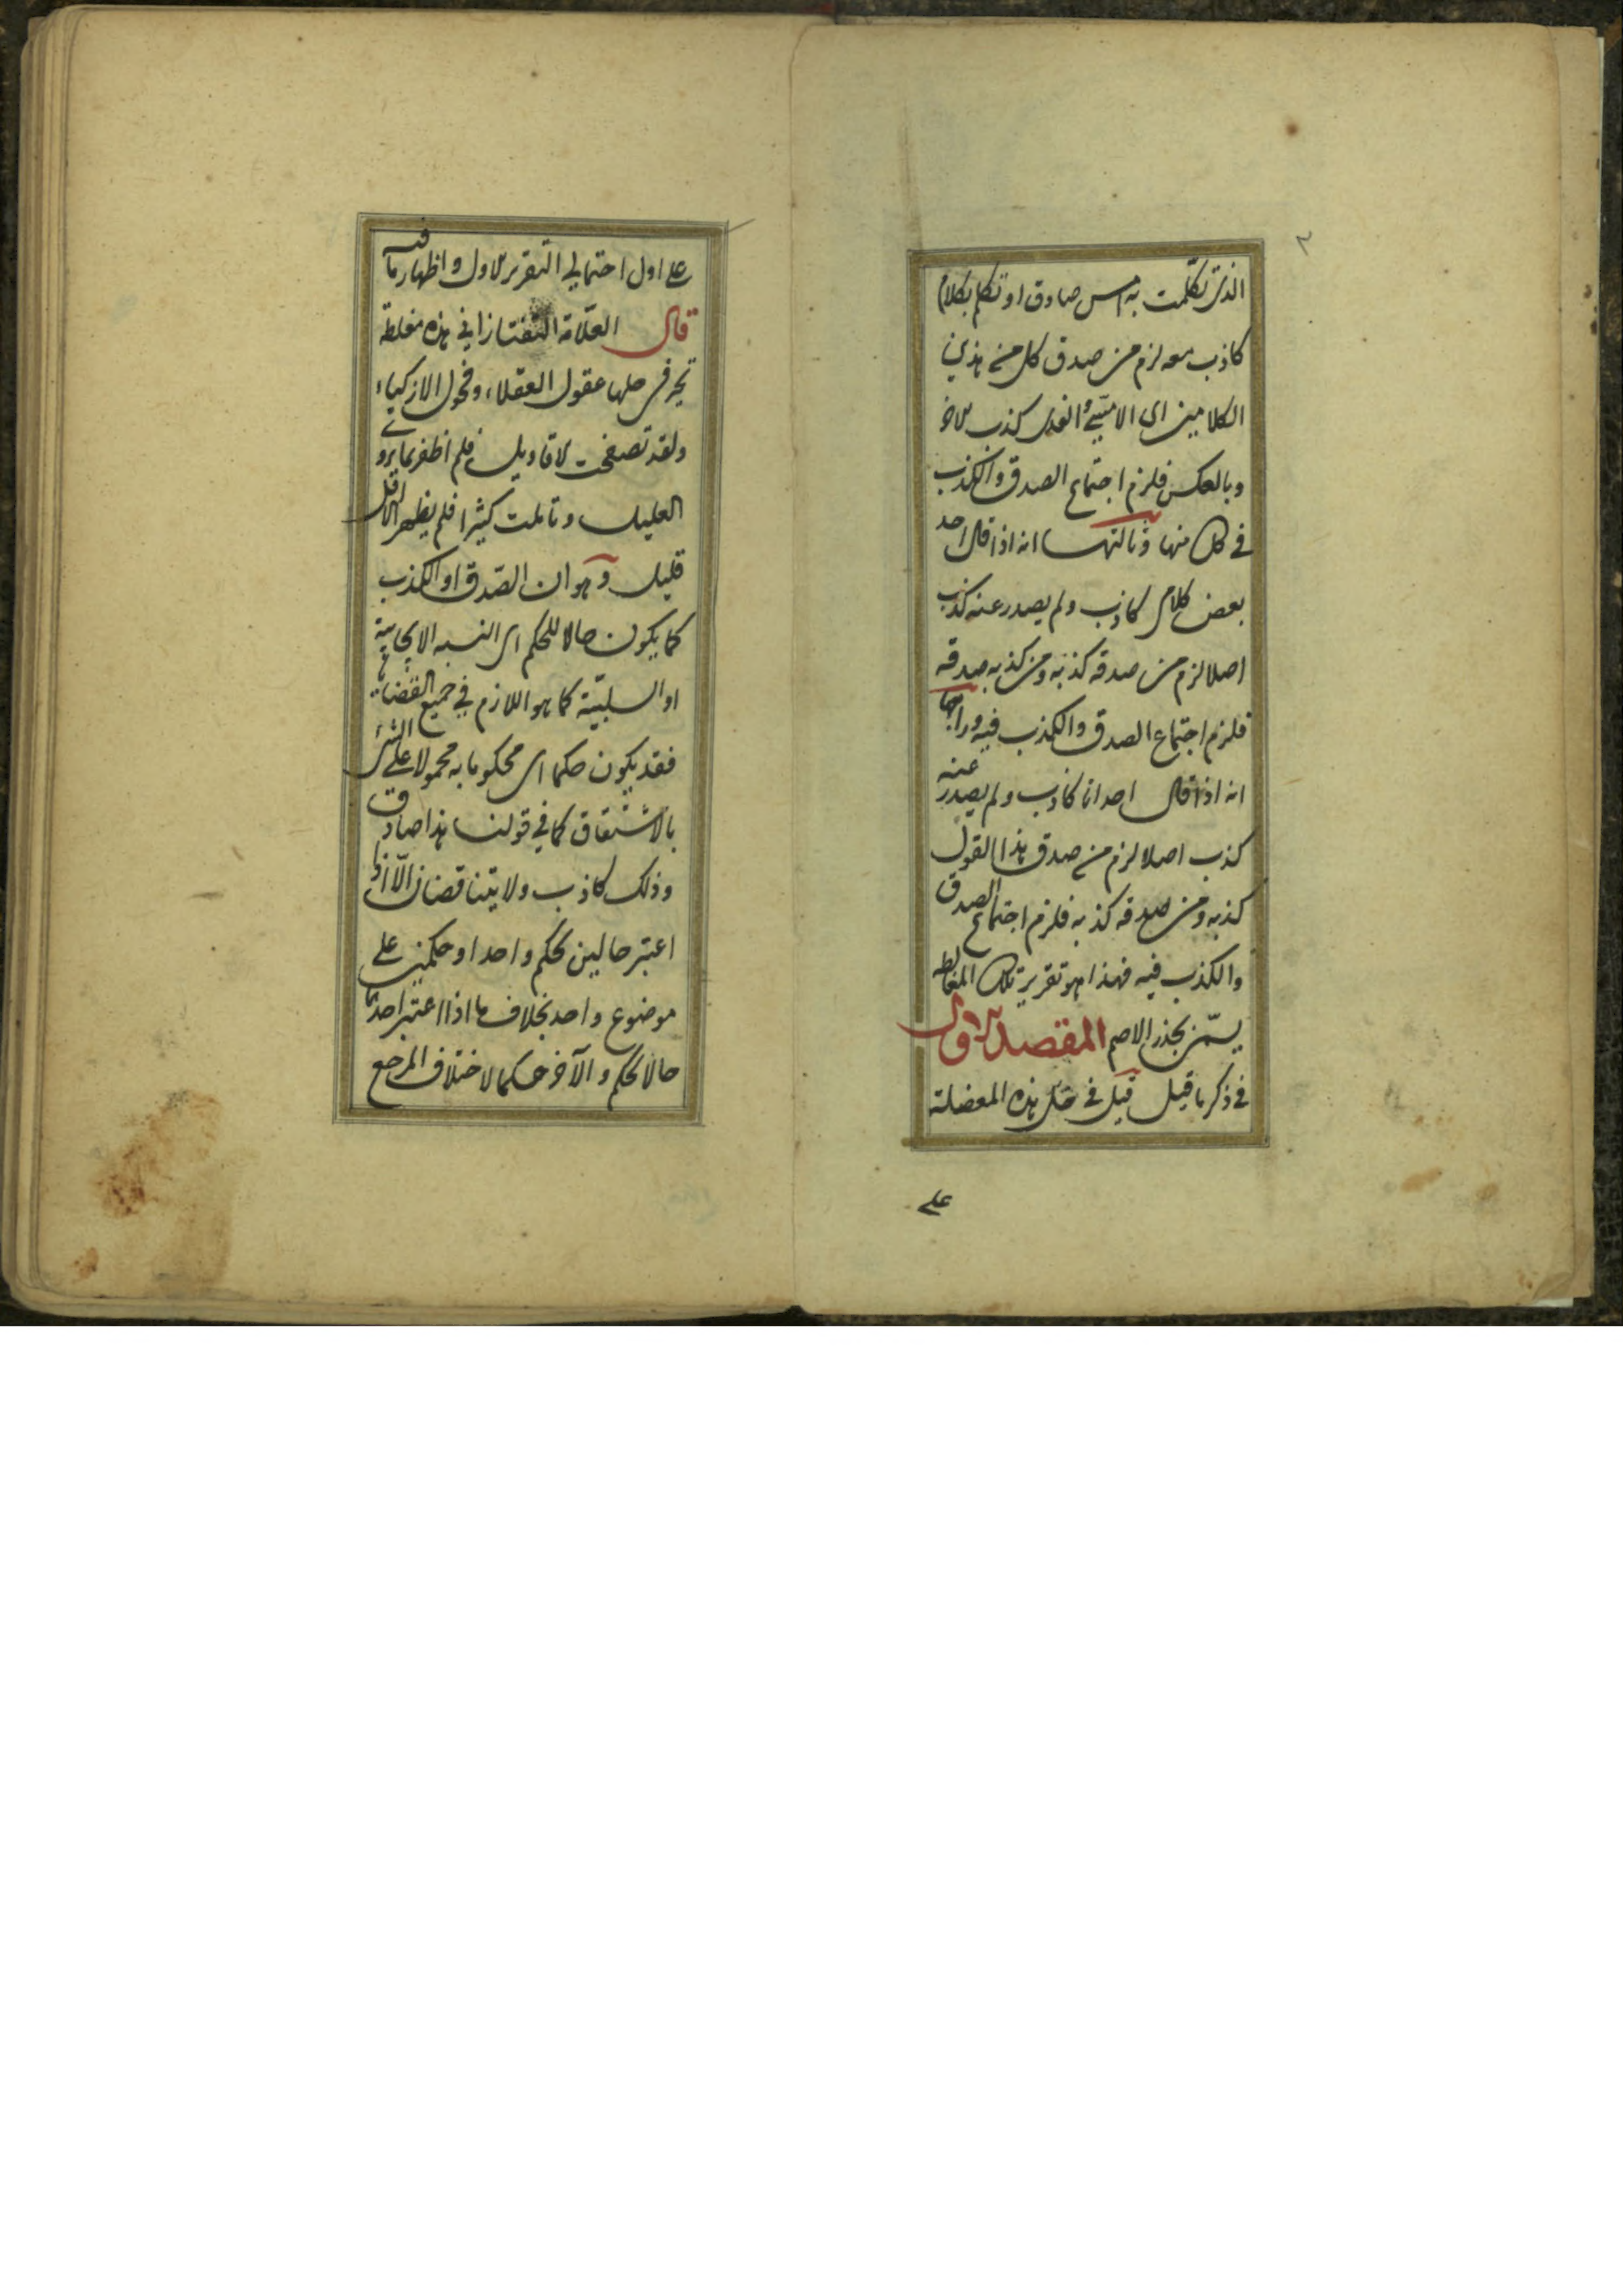 ٢
الذى تكلمت به امس صادق او تكلم بكلام
كاذب معه لزم من صدق كل من هذين
الكلامين اى الامسىّ والغدى كذب الاخر
وبالعكس فلزم اجتماع الصدق والكذب
فى كل منهما وثالثها انه اذا قال احد
بعض كلامى كاذب ولم يصدر عنه كذب
اصلا لزم من صدقه كذبه ومن كذبه صدقه
فلزم اجتماع الصدق والكذب فيه ورابعها
انه اذا قال احد انا كاذب ولم يصدر عنه
كذب اصلا لزم من صدق هذا القول
كذبه ومن صدقه كذبه فلزم اجتماع الصدق
والكذب فيه فهذا هو تقرير تلك المغالطة
يسمّى بجذر الاصم المقصد الاول
فى ذكر ما قيل قيل فى حل هذه المعضلة
على
على اول احتمالى التقرير الاول واظهار ما فيه
قال العلّامة التفتازانى هذه مغلطة
تحير فى حلها عقول العقلاء وفحول الاذكياء
ولقد تصفحت الاقاويل فلم اظفر بما يروى
العليل وتأملت كثيرا فلم يظهر الا اقل
قليل وهو ان الصّدق او الكذب
كما يكون حالا للحكم اى النسبه الايجابية
او السلبيّة كما هو اللازم فى جميع القضايا
فقد يكون حكما اى محكوما به محمولا على الشئ
بالاشتقاق كما فى قولنا هذا صادق
وذلك كاذب ولا يتناقضان الّا اذا
اعتبر حالين لحكم واحد او حكمين على
موضوع واحد بخلاف ما اذا اعتبر احدهما
حالا لحكم والآخر حكما لاختلاف المرجع